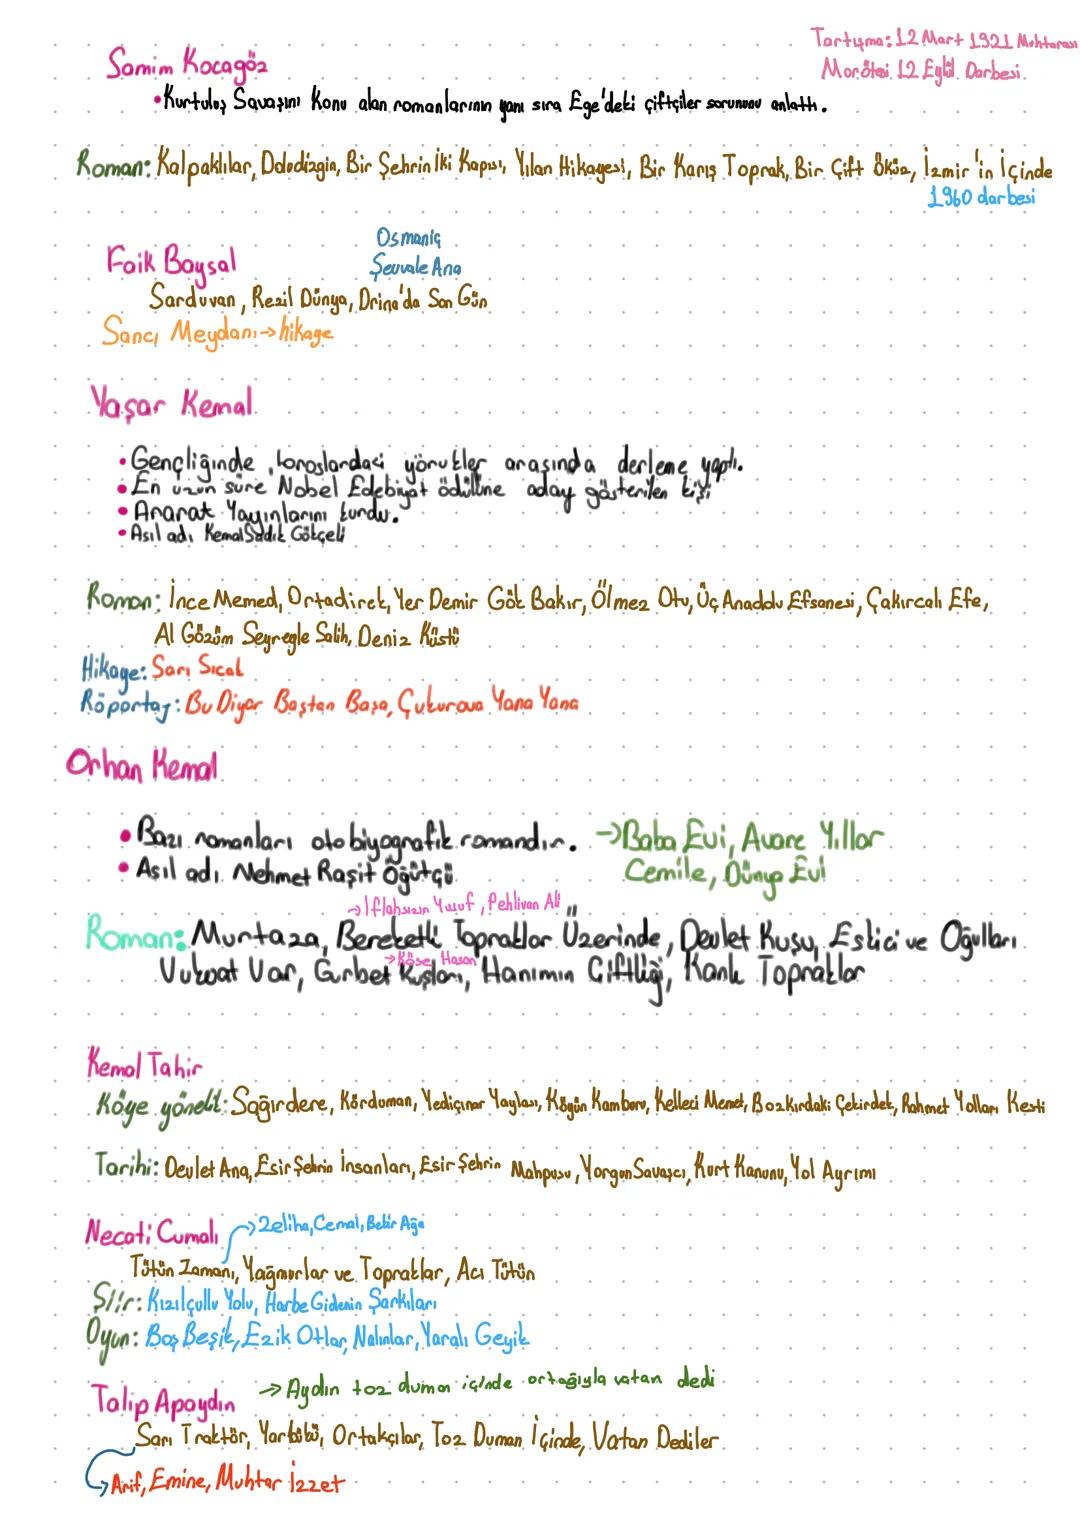 Tartışma: 12 Mart 1921 Muhtırası
Morötesi 12 Eylül Darbesi
Samim Kocagöz
•Kurtuluş Savaşını Konu alan romanlarının yanı sıra Ege'deki çiftçiler sorununu anlattı.
Roman: Kalpaklılar, Doludizgin, Bir Şehrin İki Kapısı, Yılan Hikayesi, Bir Karış Toprak, Bir Çift Öküz, İzmir'in İçinde
1960 darbesi
Osmaniç
Faik Baysal
Şevvale Ana
Sarduvan, Rezil Dünya, Drina'da Son Gün
Sancı Meydanı→hikaye
Yaşar Kemal
•Gençliğinde, toroslardaki yörükler arasında derleme yaptı.
•En uzun süre Nobel Edebiyat ödülüne aday gösterilen kişi
•Ararat Yayınlarını kurdu.
•Asıl adı Kemal Sadık Gökçeli
Roman: İnce Memed, Ortadirek, Yer Demir Gök Bakır, Ölmez Otu, Üç Anadolu Efsanesi, Çakırcalı Efe,
Al Gözüm Seyreyle Salih, Deniz Küstü
Hikaye: Sarı Sıcak
Röportaj: Bu Diyar Baştan Başa, Çukurova Yana Yana
Orhan Kemal
•Bazı romanları otobiyografik romandır. →Baba Evi, Avare Yıllar
Cemile, Dünya Evi
•Asıl adı Mehmet Raşit Öğütçü
→Iflahsızın Yusuf, Pehlivan Ali
Roman: Murtaza, Bereketli Topraklar Üzerinde, Devlet Kuşu, Eskici ve Oğulları
→Köse Hasan
Vukuat Var, Gurbet Kuşları, Hanımın Çiftliği, Kanlı Topraklar
Kemal Tahir
Köye yönelik: Sağırdere, Körduman, Yediçınar Yaylası, Köyün Kamburu, Kelleci Memet, Bozkırdaki Çekirdek, Rahmet Yolları Kesti
Tarihi: Devlet Ana, Esir Şehrin İnsanları, Esir Şehrin Mahpusu, Yorgun Savaşçı, Kurt Kanunu, Yol Ayrımı
Necati Cumalı →Zeliha, Cemal, Bekir Ağa
Tütün Zamanı, Yağmurlar ve Topraklar, Acı Tütün
Şiir: Kızılçullu Yolu, Harbe Gidenin Şarkıları
Oyun: Boş Beşik, Ezik Otlar, Nalınlar, Yaralı Geyik
Talip Apaydın →Aydın toz duman içinde ortağıyla vatan dedi
Sarı Traktör, Yarbükü, Ortakçılar, Toz Duman İçinde, Vatan Dediler
→Arif, Emine, Muhtar İzzet